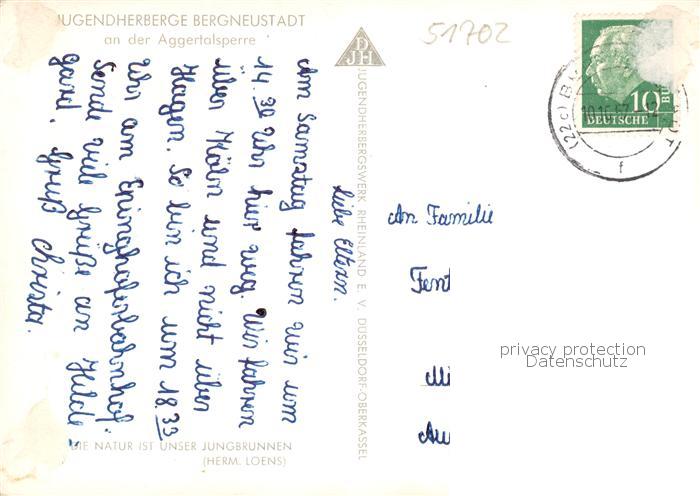 JUGENDHERBERGE BERGNEUSTADT
an der Aggertalsperre
51702
DJH
JUGENDHERBERGSWERK RHEINLAND E. V. DÜSSELDORF-OBERKASSEL
Liebe Eltern.
Am Samstag fahren wir um
14.30 Uhr hier weg. Wir fahren
über Köln und nicht über
Hagen. So bin ich um 18.33
Uhr am Eninghoferbahnhof.
Sende viele Grüße an Hilde-
gard. Gruß Christa.
DIE NATUR IST UNSER JUNGBRUNNEN
(HERM. LOENS)
10
DEUTSCHE BU
(22c) B
f
An Familie
Fent
privacy protection
Datenschutz